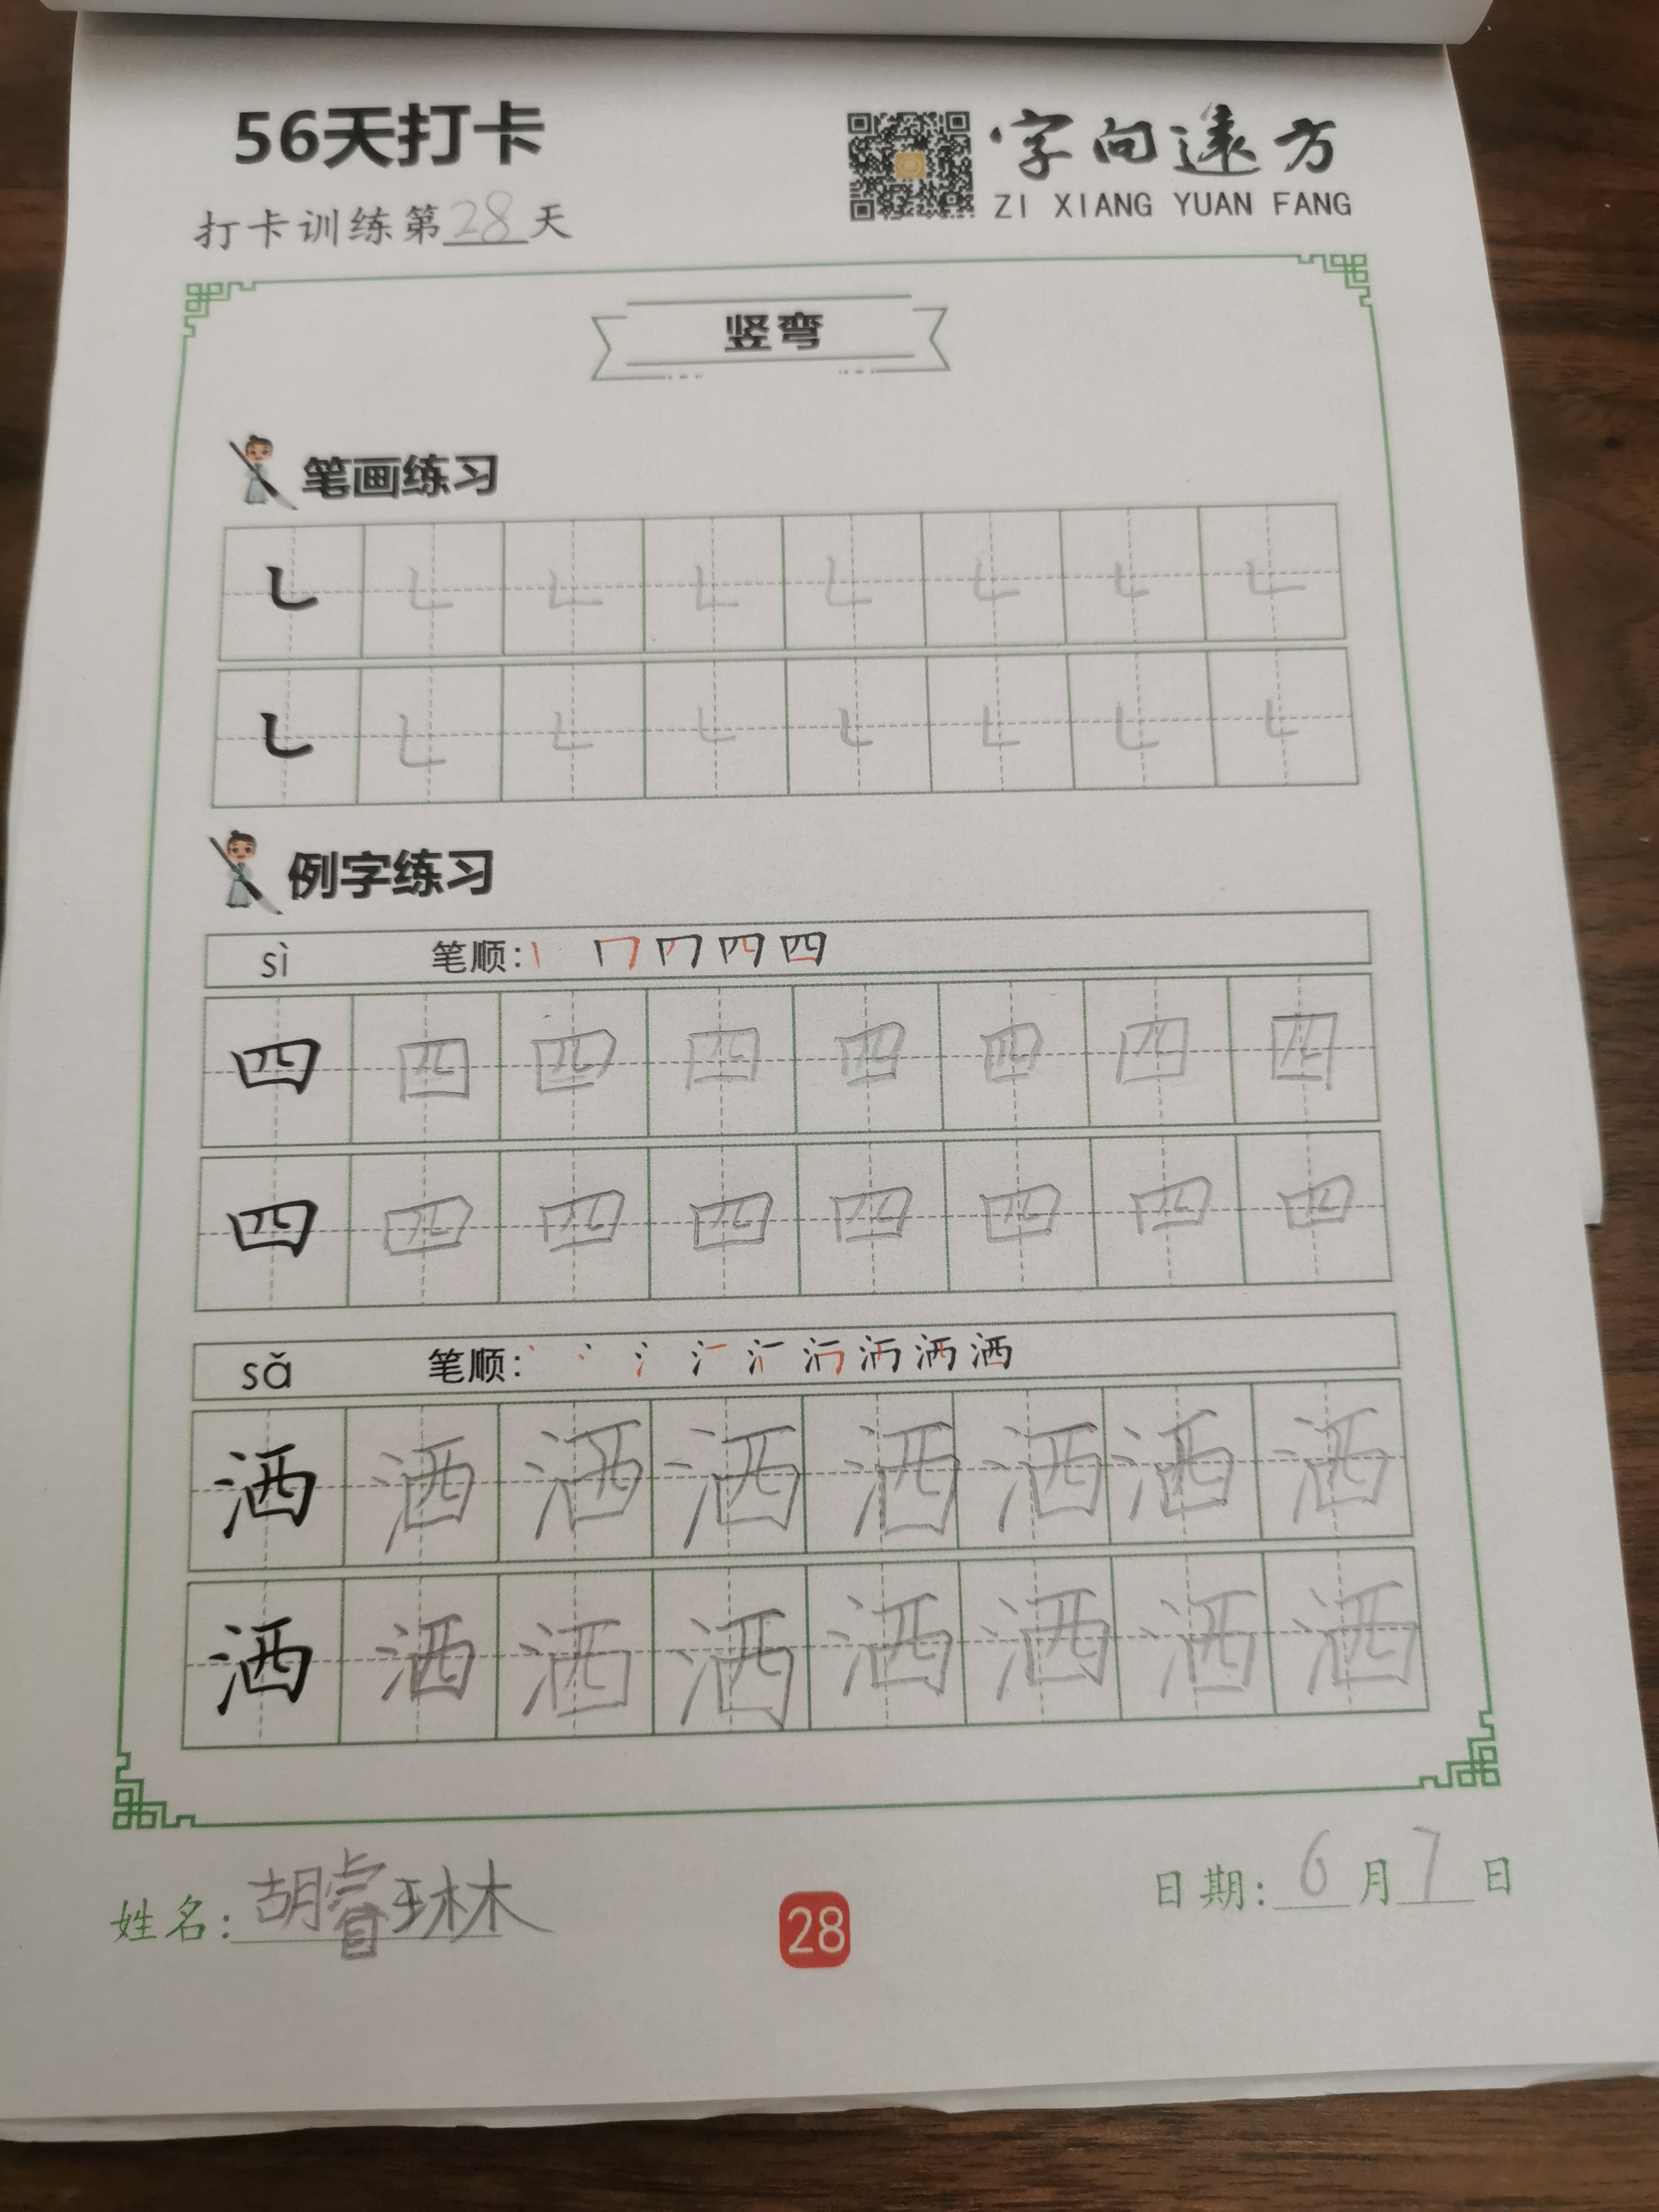 56天打卡
字向遠方
ZI XIANG YUAN FANG
打卡训练第28天
竖弯
笔画练习
㇄ ㇄ ㇄ ㇄ ㇄ ㇄ ㇄ ㇄
㇄ ㇄ ㇄ ㇄ ㇄ ㇄ ㇄ ㇄
例字练习
sì 笔顺: 四
四 四 四 四 四 四 四 四
四 四 四 四 四 四 四 四
sǎ 笔顺: 洒
洒 洒 洒 洒 洒 洒 洒 洒
洒 洒 洒 洒 洒 洒 洒 洒
姓名: 胡睿琳
28
日期: 6月7日